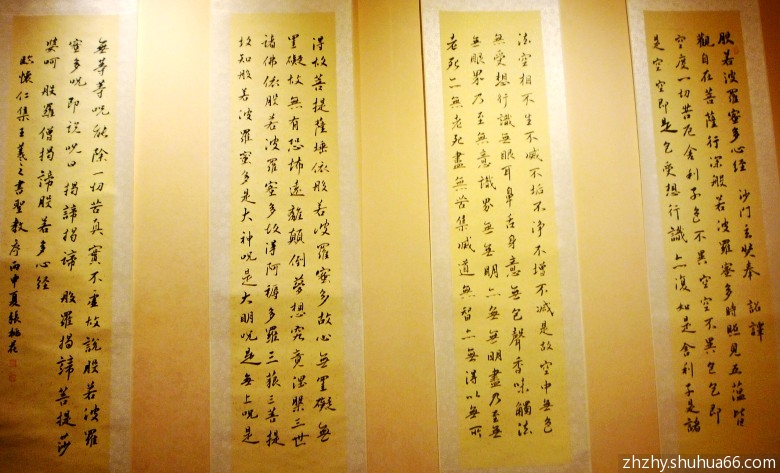 般若波羅蜜多心經 沙門玄奘奉 詔譯
觀自在菩薩行深般若波羅蜜多時照見五蘊皆
空度一切苦厄舍利子色不異空空不異色色即
是空空即是色受想行識亦復如是舍利子是諸
法空相不生不滅不垢不淨不增不減是故空中無色
無受想行識無眼耳鼻舌身意無色聲香味觸法
無眼界乃至無意識界無無明亦無無明盡乃至無
老死亦無老死盡無苦集滅道無智亦無得以無所
得故菩提薩埵依般若波羅蜜多故心無罣礙無
罣礙故無有恐怖遠離顛倒夢想究竟涅槃三世
諸佛依般若波羅蜜多故得阿耨多羅三藐三菩提
故知般若波羅蜜多是大神呪是大明呪是無上呪是
無等等呪能除一切苦真實不虛故說般若波羅
蜜多呪即說呪曰 揭諦揭諦 般羅揭諦 菩提莎
婆呵 般羅僧揭諦 般若多心經
臨懷仁集王羲之書聖教序丙申夏張桃花
zhzhy.shuhua66.com